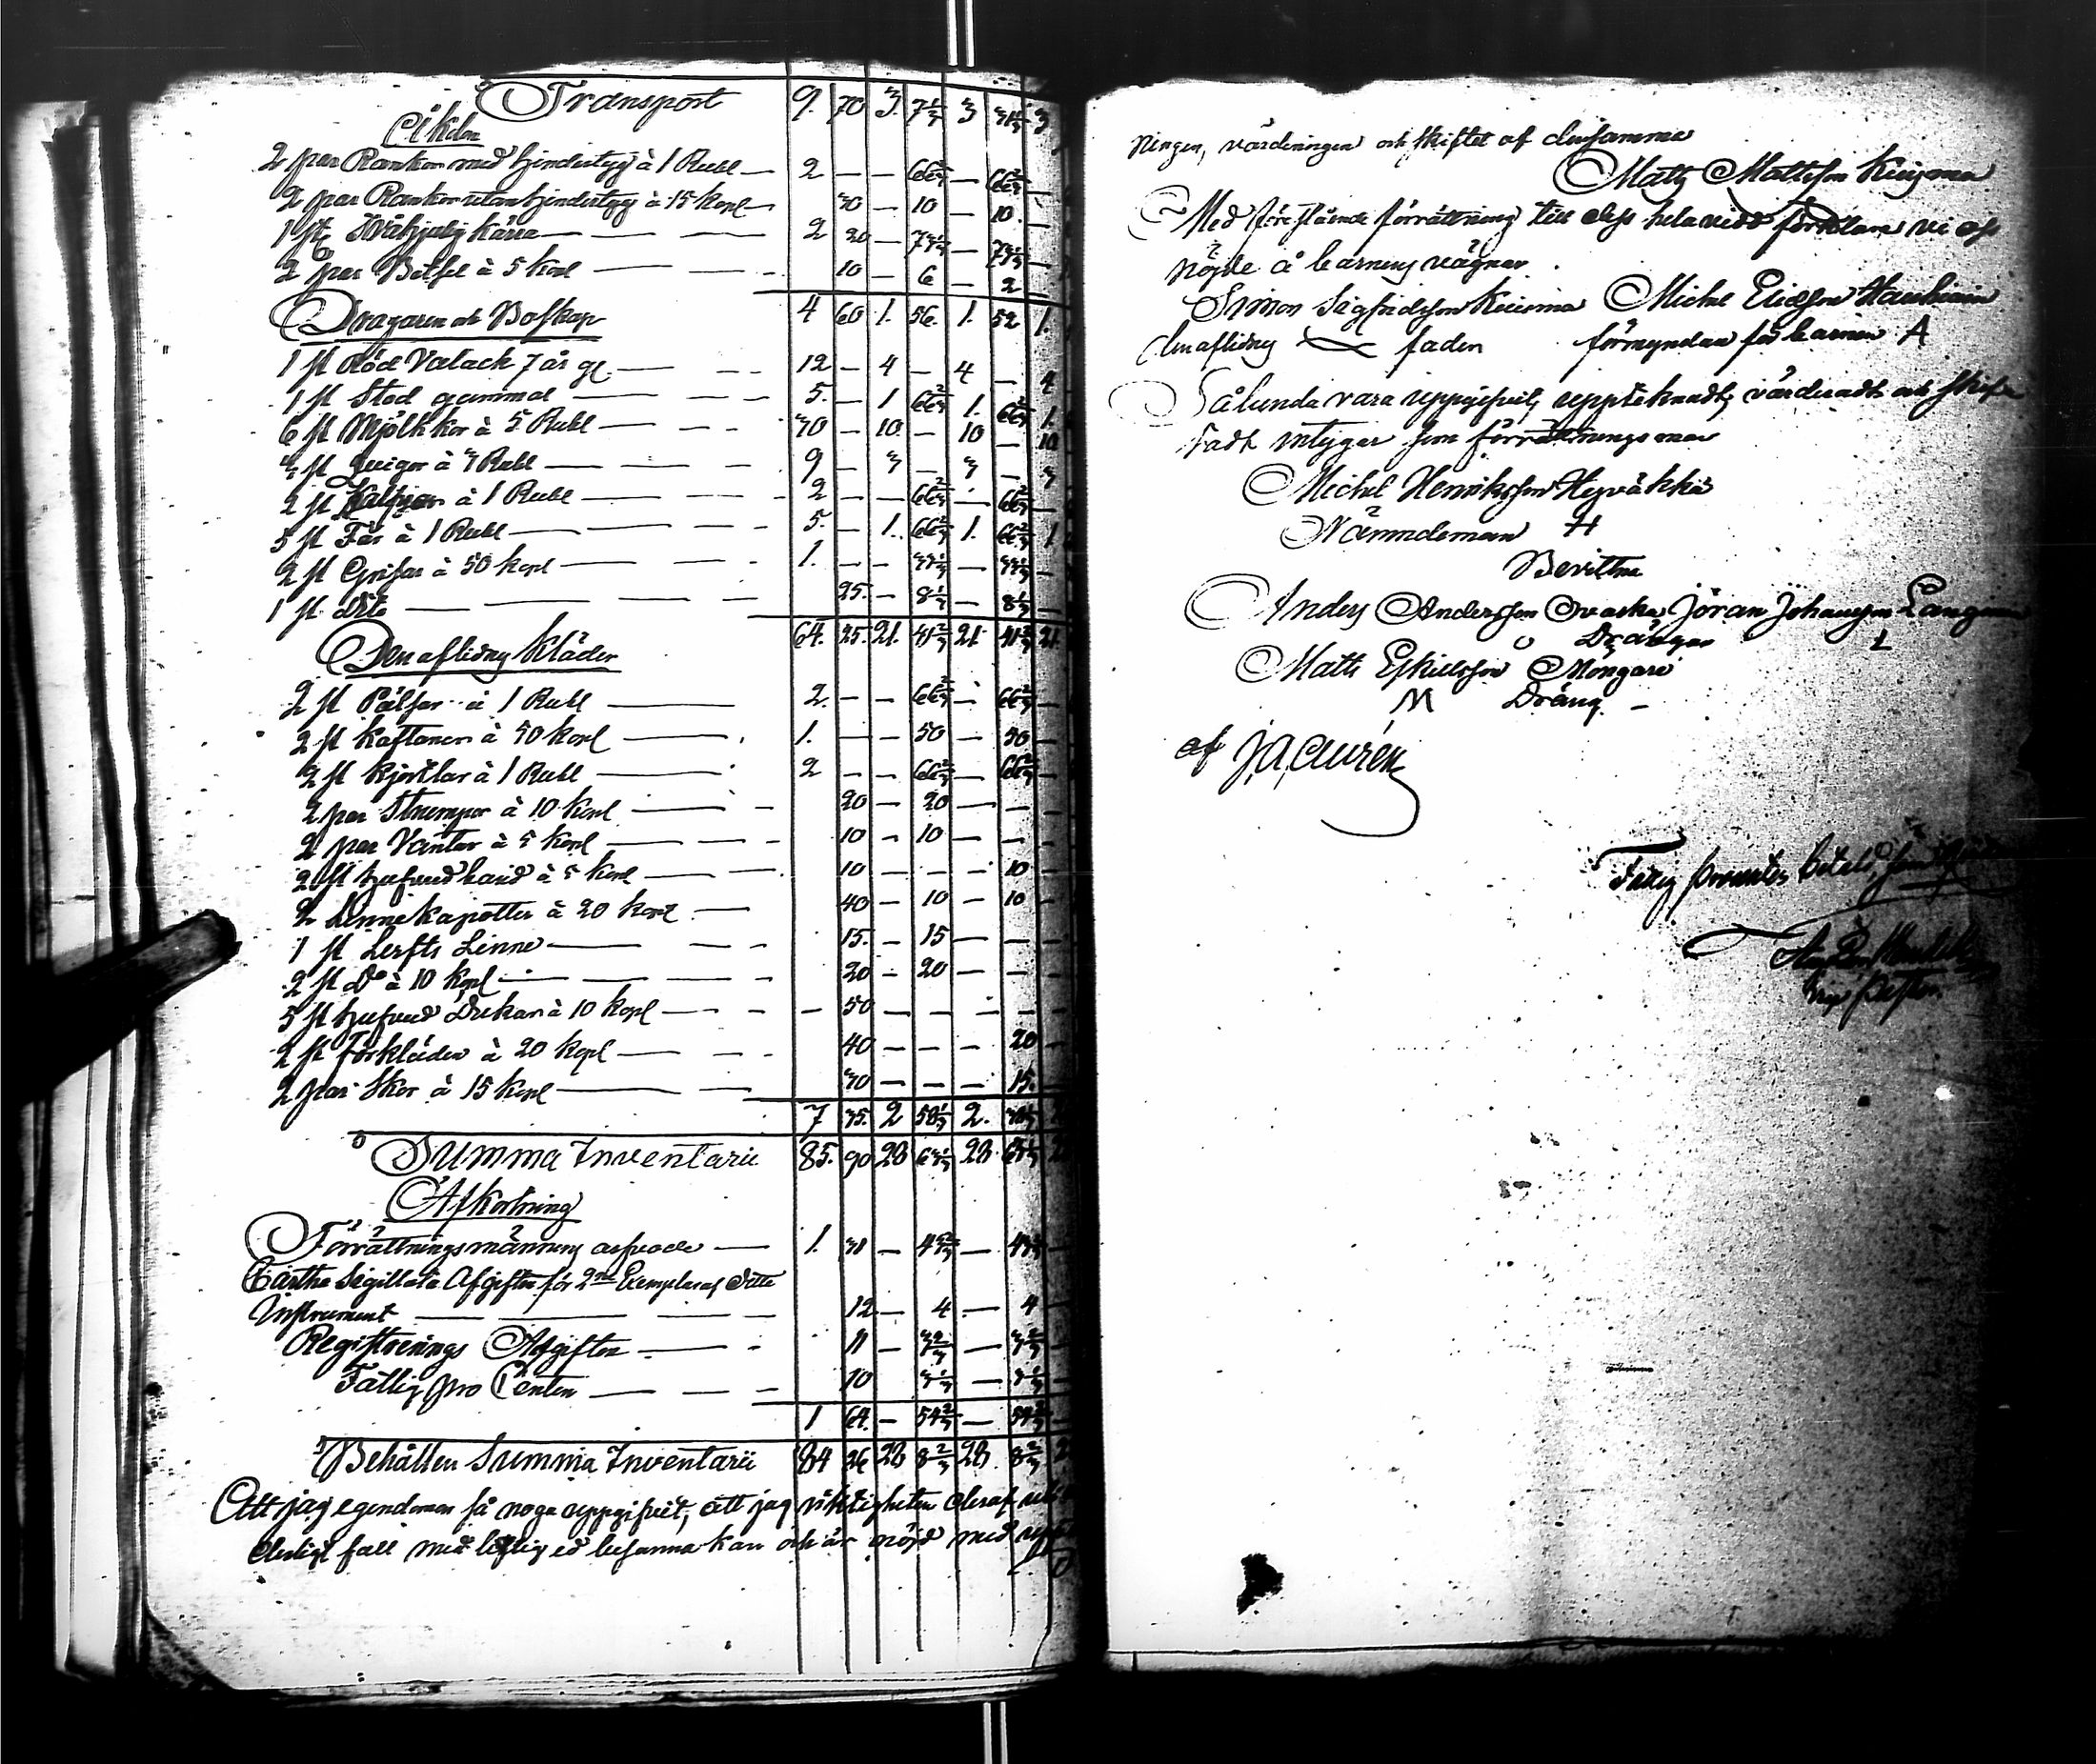 Transport 9. 70 3. 7 1/3 3 31 1/3 3
Åkdon
2 par Rankor med hindertyg à 1 Rubl — 2 — — 66 2/3 — 66 2/3 —
2 par Rankor utan hindertyg à 15 kopl — 30 — 10 — 10. —
1 st tvåhjulig kärra — — — 2 20 — 73 1/3 — 73 1/3 —
2 par Betsel à 5 kopl — — — 10 — 6 — 2
4 60 1. 56. 1. 52 1.
Dragaren och Boskap
1 st Röd Valack 7 år gl. — — — 12 — 4 — 4 — 4
1 st Stod gammal — — — 5. — 1 66 2/3 1. 66 2/3 1.
6 st Mjölk kor à 5 Rubl — — 30 — 10. — 10 — 10
3 st Quigor à 3 Rubl — — — 9 — 3 — 3 — 3
2 st Kalfvar à 1 Rubl — — — 2 — — 66 2/3 — 66 2/3 —
5 st Får à 1 Rubl — — — 5. — 1. 66 2/3 1. 66 2/3 1
2 st Grisar à 50 kopl — — — 1. — — 33 1/3 — 33 1/3 —
1 st dito — — — 25. — 8 1/3 — 8 1/3 —
64. 25. 21. 41 2/3 21. 41 2/3 21.
Den aflidnes Kläder
2 st Pälsar à 1 Rubl — 2. — — 66 2/3 — 66 2/3 —
2 st Kaftaner à 50 kopl — 1. — — 50 — 50 —
2 st Kjortlar à 1 Rubl — 2 — — 66 2/3 — 66 2/3 —
2 par Strumpor à 10 kopl — — 20 — 20 — — —
2 par Vantar à 5 kopl — — — 10 — 10 — — —
2 st hufvudband à 5 kopl — — 10 — — — 10 —
2 Linnekapotter à 20 kopl. — 40 — 10 — 10 —
1 st Lerfts Linne — — — 15. — 15 — — —
2 st Do à 10 kopl — — — 20 — 20 — — —
5 st hufvud Dukar à 10 kopl — — — 50 — — — — —
2 st förkläden à 20 kopl — — — 40 — — — 20 —
2 par Skor à 15 kopl — — 30 — — — 15. —
7 35. 2 58 1/3 2.
Summa Inventarii 85. 90 28 63 1/3 28. 63 1/3
Afkortning
Förrättningsmännens arfvode — 1. 31 — 43 2/3 — 43 2/3 —
Cartha Sigillata Afgiften för 2ne Exemplar af detta
Instrument — — — 12 — 4 — 4 —
Registrerings Afgiften — — 11 — 3 2/3 — 3 2/3 —
Fattig pro Centen — — — 10 3 1/3 — 3 1/3 —
1 64. — 54 2/3 — 54 2/3 —
Behållen Summa Inventarii 84 26 28 8 2/3 28. 8 2/3
Att jag egendomen så noga uppgifvit, att jag riktigheten deraf
dertigt fall med liflig ed besanna kan och är nöjd med
ningen, värderingen och skiftet af densamma
Matts Mattsson Kiisma
Med föreståënde förrättning till dess hela vidd förklara vi oss
nöjde å barnens vägnar
Simon Sigfridsson Kiisma Michel Ericsson Haukiain
den aflidnes fader förmyndare för barnen A
Sålunda vara uppgifvit, upptecknadt, värderadt och skif
tadt intygar som förrättningsman
Michel Henriksson Hyväkkä
Nämndeman H
Bevittna
Anders Andersson Jöran Johansson
O Drängar L
Matts Eskillsson Mongari
M Dräng —
af J. A. Aurén
Fattig procenten betald,